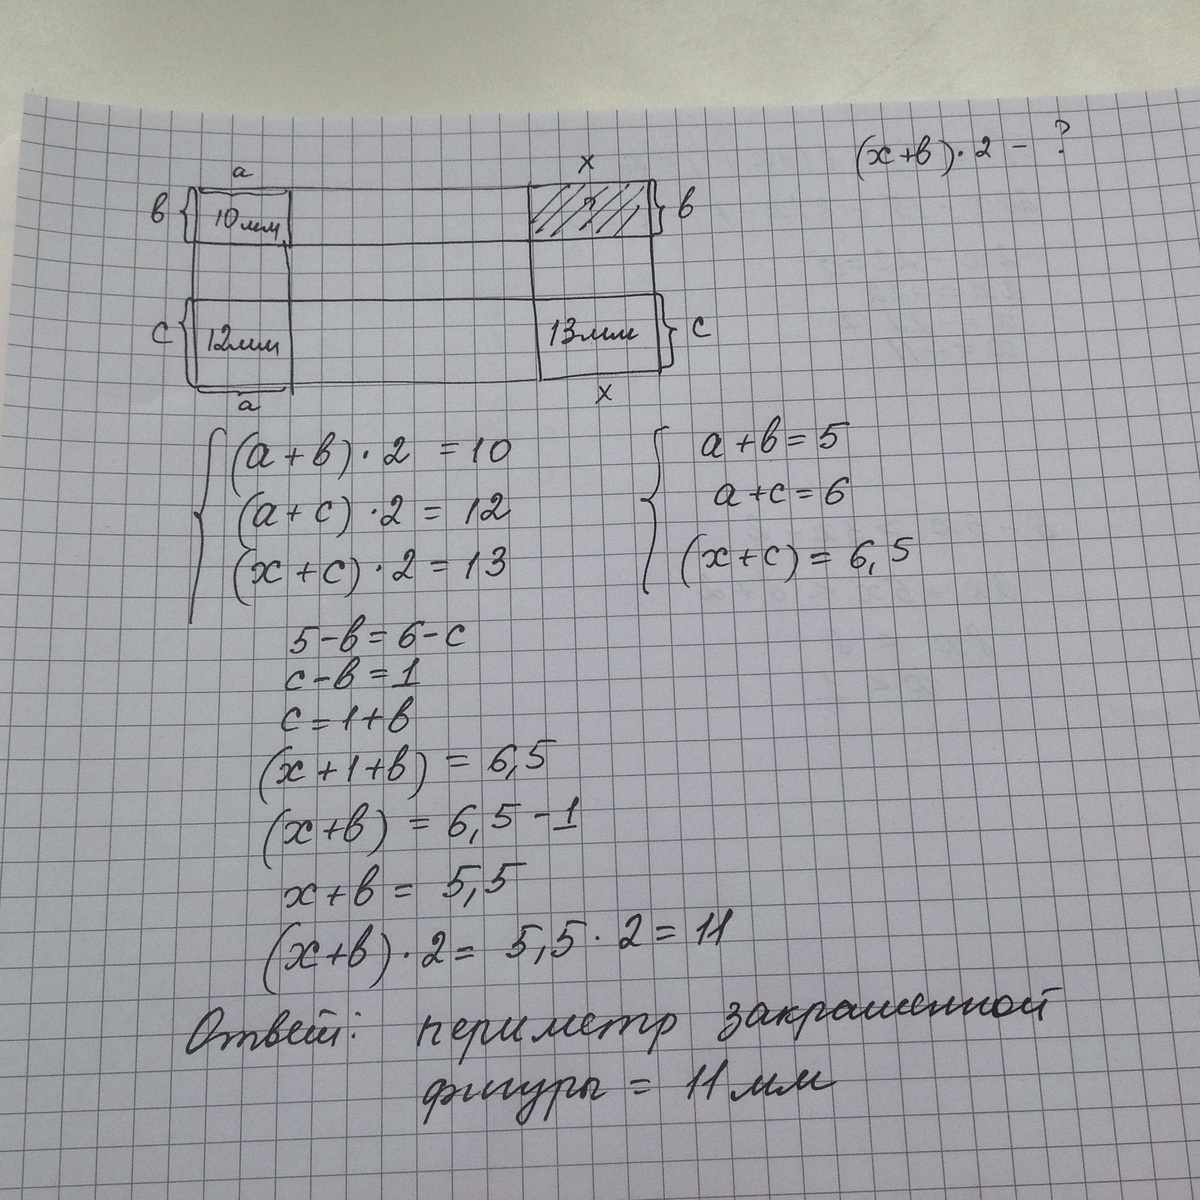 (x+в)·2 - ?
a x
в 10мм ? в
c 12мм 13мм c
a x
(a+в)·2 = 10
(a+c)·2 = 12
(x+c)·2 = 13
a+в=5
a+c=6
(x+c) = 6,5
5-в=6-c
c-в=1
c=1+в
(x+1+в) = 6,5
(x+в) = 6,5-1
x+в = 5,5
(x+в)·2 = 5,5·2 = 11
Ответ: периметр закрашенной
фигуры = 11мм